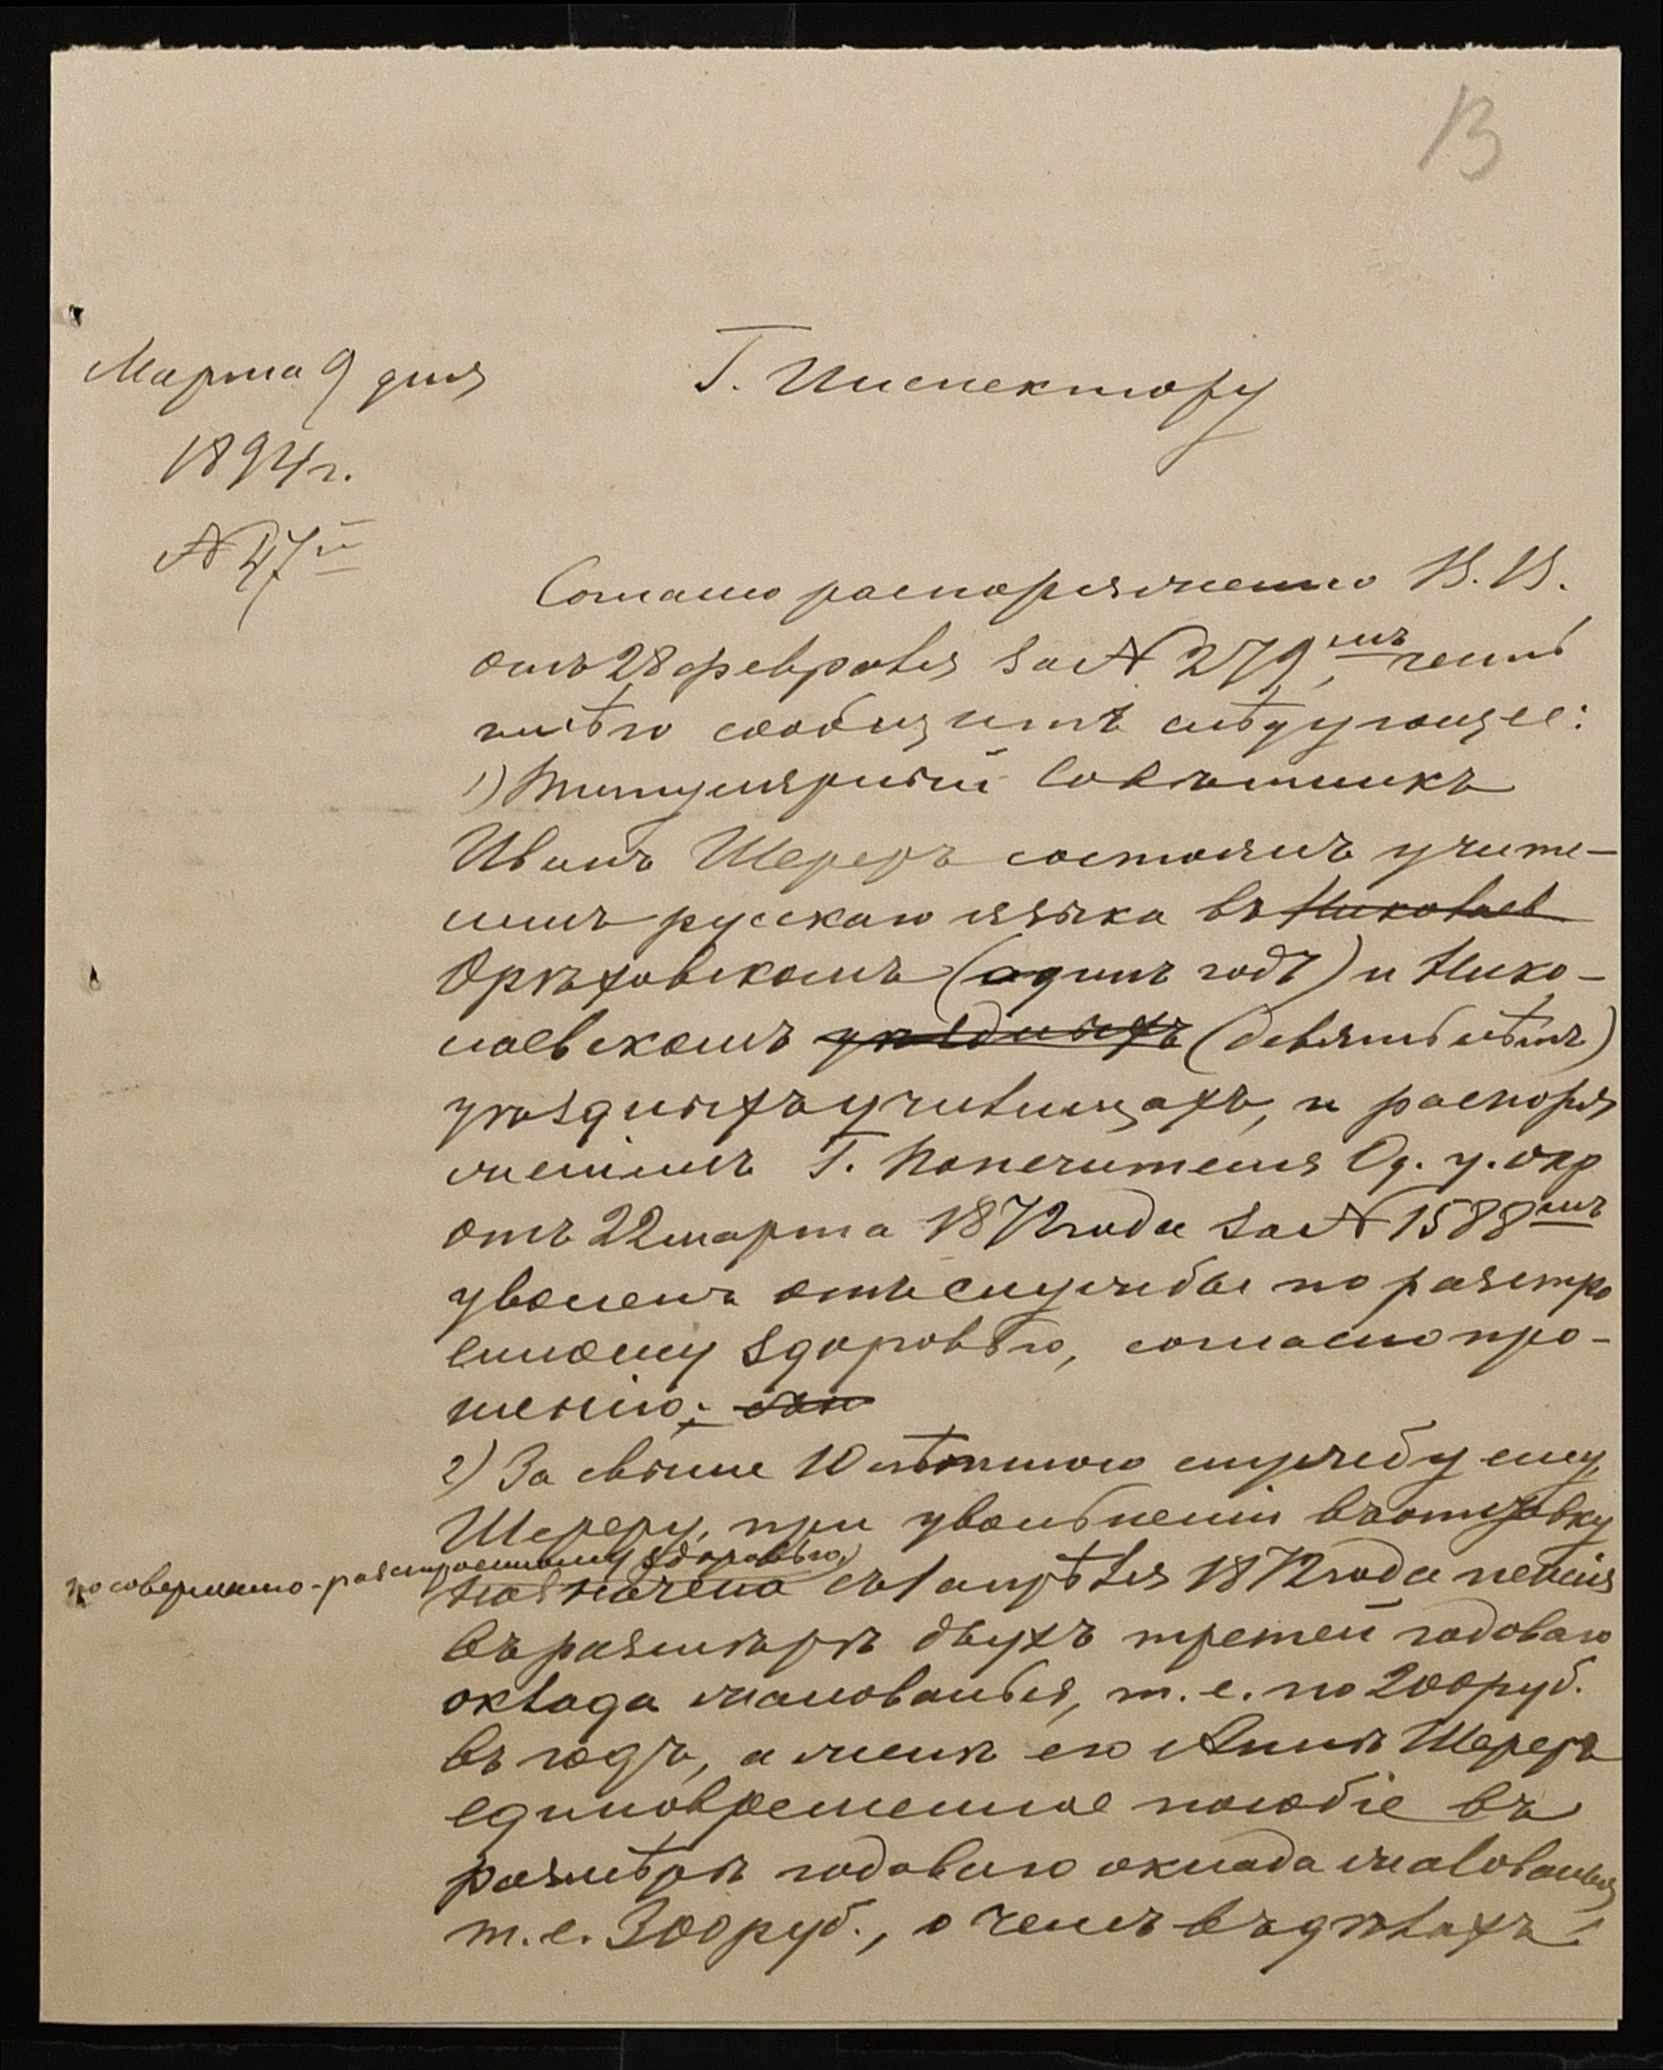 13
Марта 9 дня
1894 г.
№ 47й
Г. Инспектору
Согласно распоряженію В. В.
отъ 28 февраля за № 279мъ, честь
имѣю сообщить слѣдующее:
1) Титулярный Совѣтникъ
Иванъ Шереръ состоялъ учите-
лемъ русскаго языка въ Николаев
Орѣховскомъ (одинъ годъ) и Нико-
лаевскомъ уѣздныхъ (девять лѣтъ)
уѣздныхъ училищахъ, и распоря
женіемъ Г. Попечителя Од. у. окр
отъ 22 марта 1872 года за № 1588мъ
уволенъ отъ службы по разстро
енному здоровью, согласно про-
шенію;
2) За свыше 10 лѣтнюю службу ему,
Шереру, при увольненіи въ отставку
по совершенно-разстроенному здоровью,
назначена съ 1 апрѣля 1872 года пенсія
въ размѣрѣ двухъ третей годоваго
оклада жалованья, т. е. по 200 руб.
въ годъ, а женѣ его Аннѣ Шереръ
единовременное пособіе въ
размѣрѣ годоваго оклада жалованья
т. е. 300 руб., о чемъ въ дѣлахъ